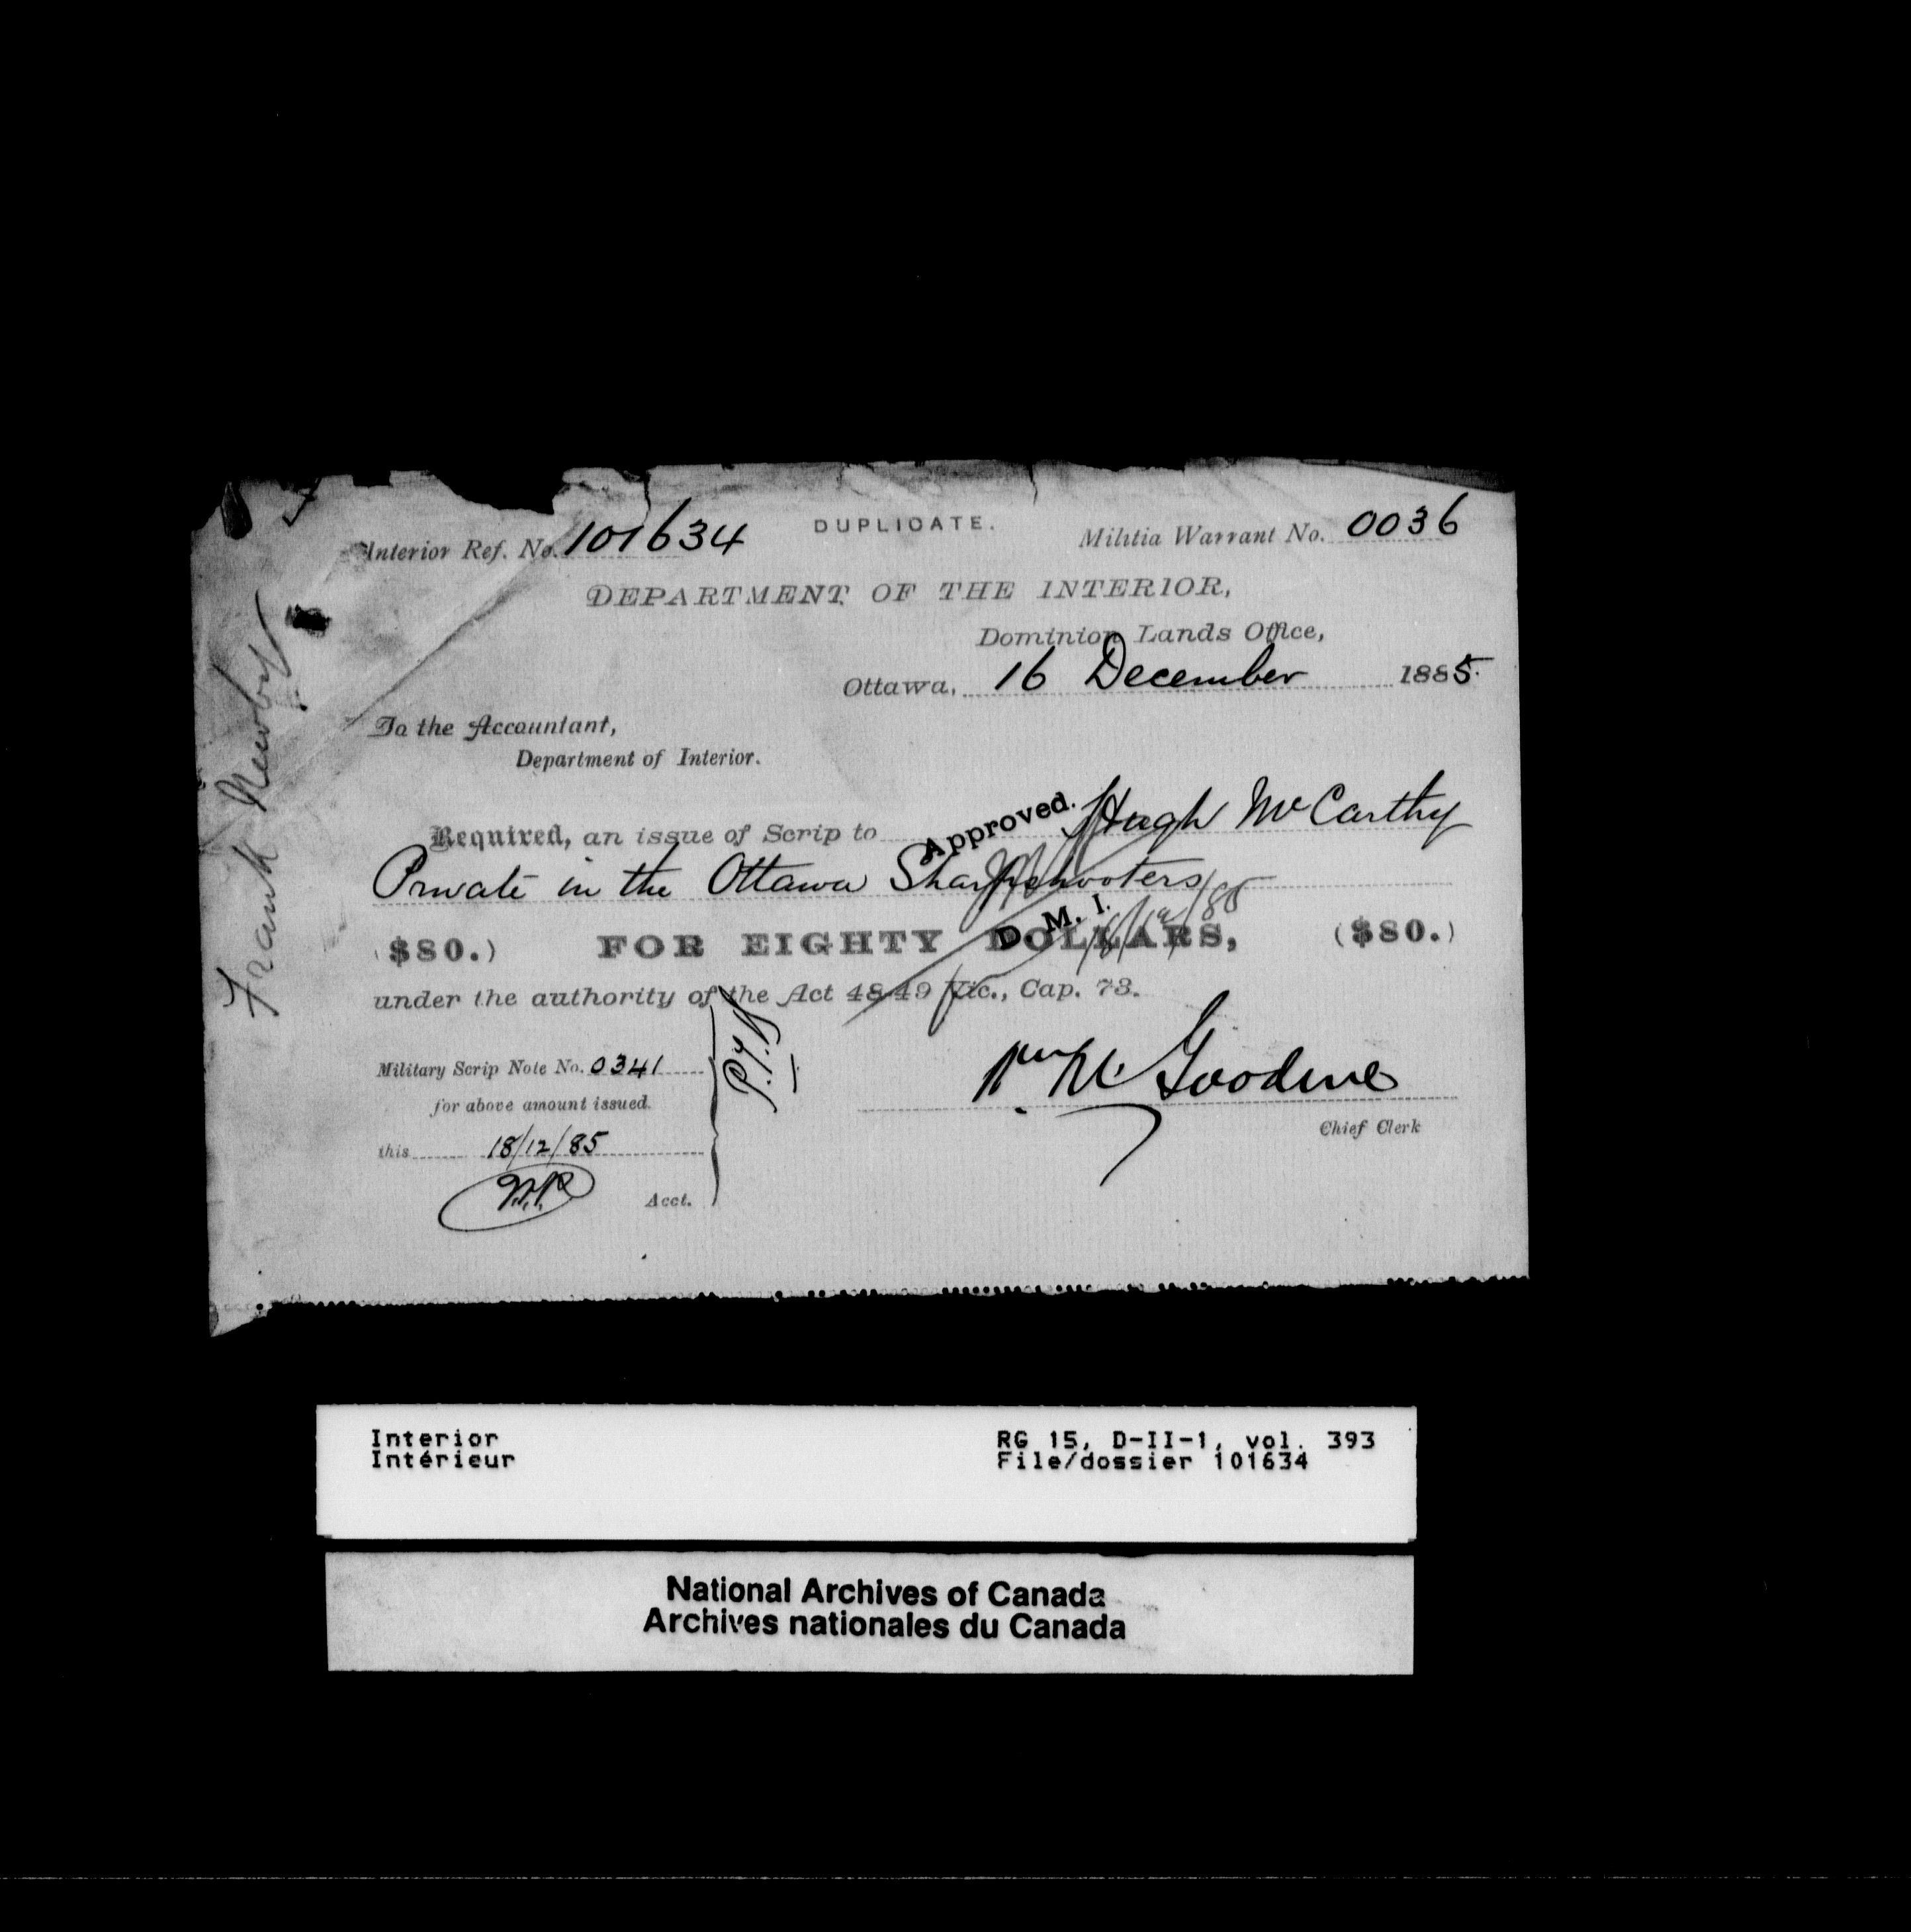 DUPLICATE.
Interior Ref. No. 101634
Militia Warrant No. 0036
DEPARTMENT OF THE INTERIOR,
Dominion Lands Office,
Ottawa, 16 December 1885.
To the Accountant,
Department of Interior.
Approved.
Required, an issue of Scrip to Hugh McCarthy
Private in the Ottawa Sharpshooters
D. M. I.
($80.) FOR EIGHTY DOLLARS, ($80.)
under the authority of the Act 48-49 Vic., Cap. 73.
Military Scrip Note No. 0341
for above amount issued.
this 18/12/85
Acct.
Chief Clerk
Frank Newby
Interior
Intérieur
RG 15, D-II-1, vol. 393
File/dossier 101634
National Archives of Canada
Archives nationales du Canada